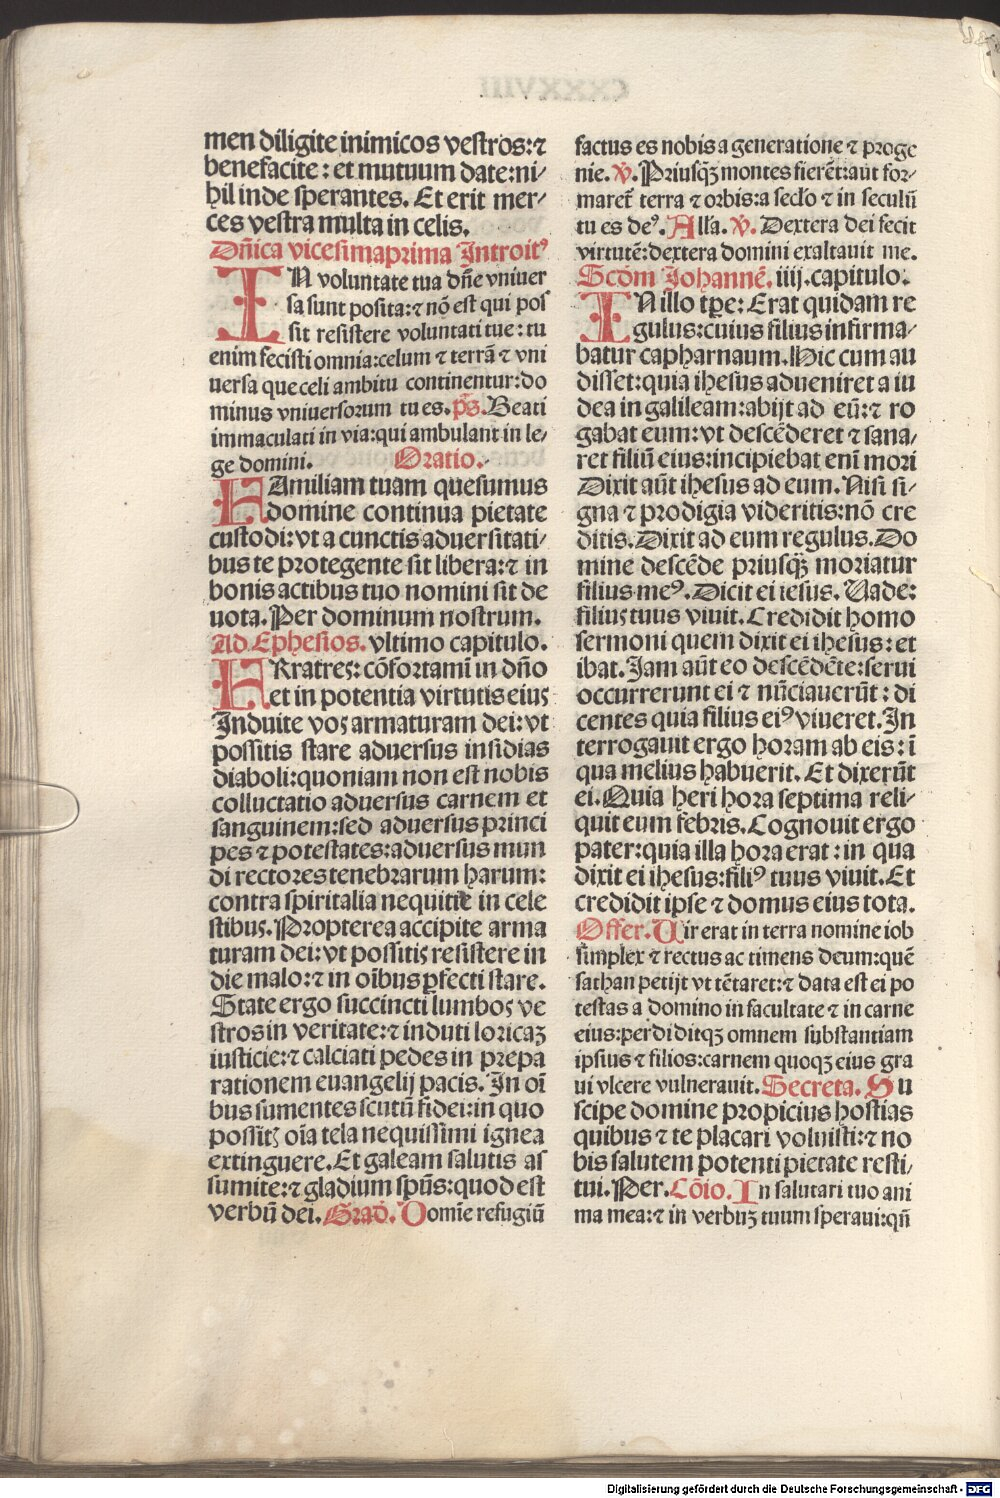 men diligite inimicos vestros: ⁊
benefacite: et mutuum date: ni⸗
hil inde sperantes. Et erit mer⸗
ces vestra multa in celis.
Dñica vicesimaprima Introitꝰ
IN voluntate tua dñe vniuer
sa sunt posita: ⁊ nō est qui pos
sit resistere voluntati tue: tu
enim fecisti omnia: celum ⁊ terrā ⁊ vni
uersa que celi ambitu continentur: do
minus vniuersorum tu es. p̄s. Beati
immaculati in via: qui ambulant in le⸗
ge domini. Oratio.
FAmiliam tuam quesumus
domine continua pietate
custodi: vt a cunctis aduersitati⸗
bus te protegente sit libera: ⁊ in
bonis actibus tuo nomini sit de
uota. Per dominum nostrum.
Ad Ephesios. vltimo capitulo.
FRratres: cōfortamī in dño
et in potentia virtutis eius
Induite vos armaturam dei: vt
possitis stare aduersus insidias
diaboli: quoniam non est nobis
colluctatio aduersus carnem et
sanguinem: sed aduersus princi
pes ⁊ potestates: aduersus mun
di rectores tenebrarum harum:
contra spiritalia nequitie in cele
stibus. Propterea accipite arma
turam dei: vt possitis resistere in
die malo: ⁊ in oībus ꝑfecti stare.
State ergo succincti lumbos ve
stros in veritate: ⁊ induti loricaꝫ
iusticie: ⁊ calciati pedes in prepa
rationem euangelij pacis. In oī
bus sumentes scutū fidei: in quo
possitꝭ oīa tela nequissimi ignea
extinguere. Et galeam salutis as
sumite: ⁊ gladium spūs: quod est
verbū dei. Grad̄. Domīe refugiū
factus es nobis a generatione ⁊ proge
nie. v̄. Priusqꝫ montes fierēt: aut for⸗
marēt terra ⁊ orbis: a seclo ⁊ in seculū
tu es deꝰ. Alla. v̄. Dextera dei fecit
virtutē: dextera domini exaltauit me.
Scd̄m Johannē. iiij. capitulo.
IN illo tꝑe: Erat quidam re
gulus: cuius filius infirma⸗
batur capharnaum. Hic cum au
disset: quia ihesus adueniret a iu
dea in galileam: abijt ad eū: ⁊ ro
gabat eum: vt descēderet ⁊ sana⸗
ret filiū eius: incipiebat enī mori
Dixit aūt ihesus ad eum. Nisi si⸗
gna ⁊ prodigia videritis: nō cre
ditis. Dixit ad eum regulus. Do
mine descēde priusqꝫ moriatur
filius meꝰ. Dicit ei iesus. Vade:
filius tuus viuit. Credidit homo
sermoni quem dixit ei ihesus: et
ibat. Jam aūt eo descēdēte: serui
occurrerunt ei ⁊ nūciauerūt: di
centes quia filius eiꝰ viueret. In
terrogauit ergo horam ab eis: ī
qua melius habuerit. Et dixerūt
ei. Quia heri hora septima reli⸗
quit eum febris. Cognouit ergo
pater: quia illa hora erat: in qua
dixit ei ihesus: filiꝰ tuus viuit. Et
credidit ipse ⁊ domus eius tota.
Offer. Vir erat in terra nomine iob
simplex ⁊ rectus ac timens deum: quē
sathan petijt vt tētaret: ⁊ data est ei po
testas a domino in facultate ⁊ in carne
eius: perdiditqꝫ omnem substantiam
ipsius ⁊ filios: carnem quoqꝫ eius gra
ui vlcere vulnerauit. Secreta. Su
scipe domine propicius hostias
quibus ⁊ te placari voluisti: ⁊ no
bis salutem potenti pietate resti⸗
tui. Per. Cōio. In salutari tuo ani
ma mea: ⁊ in verbuꝫ tuum speraui: qñ
Digitalisierung gefördert durch die Deutsche Forschungsgemeinschaft - DFG